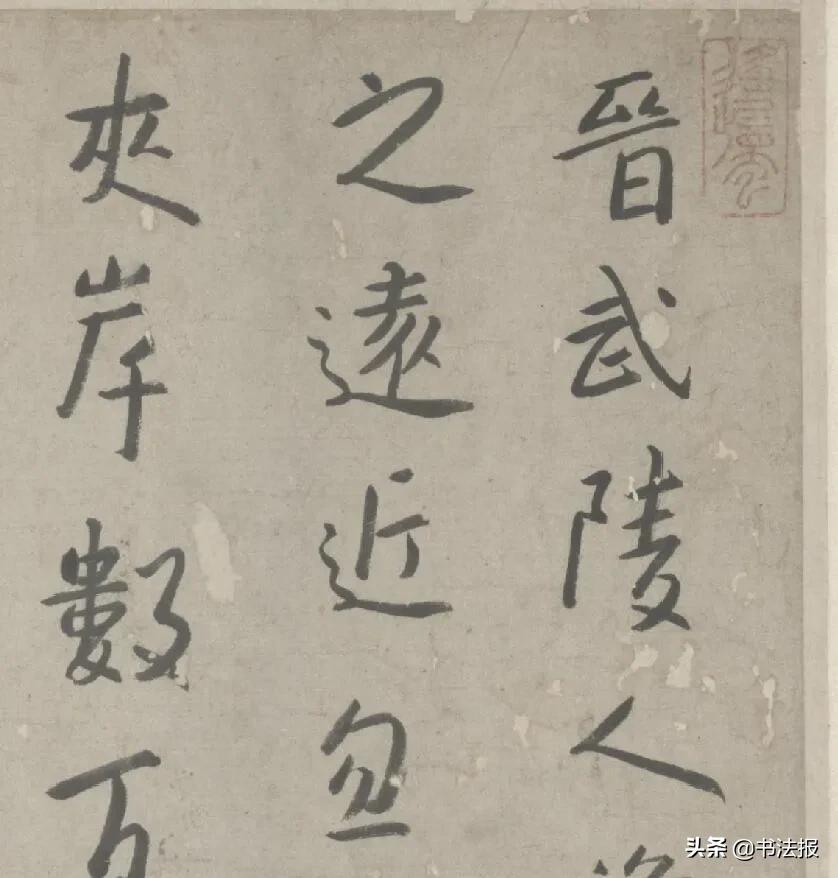 晋武陵人
之遠近忽
夾岸數百
头条 @书法报